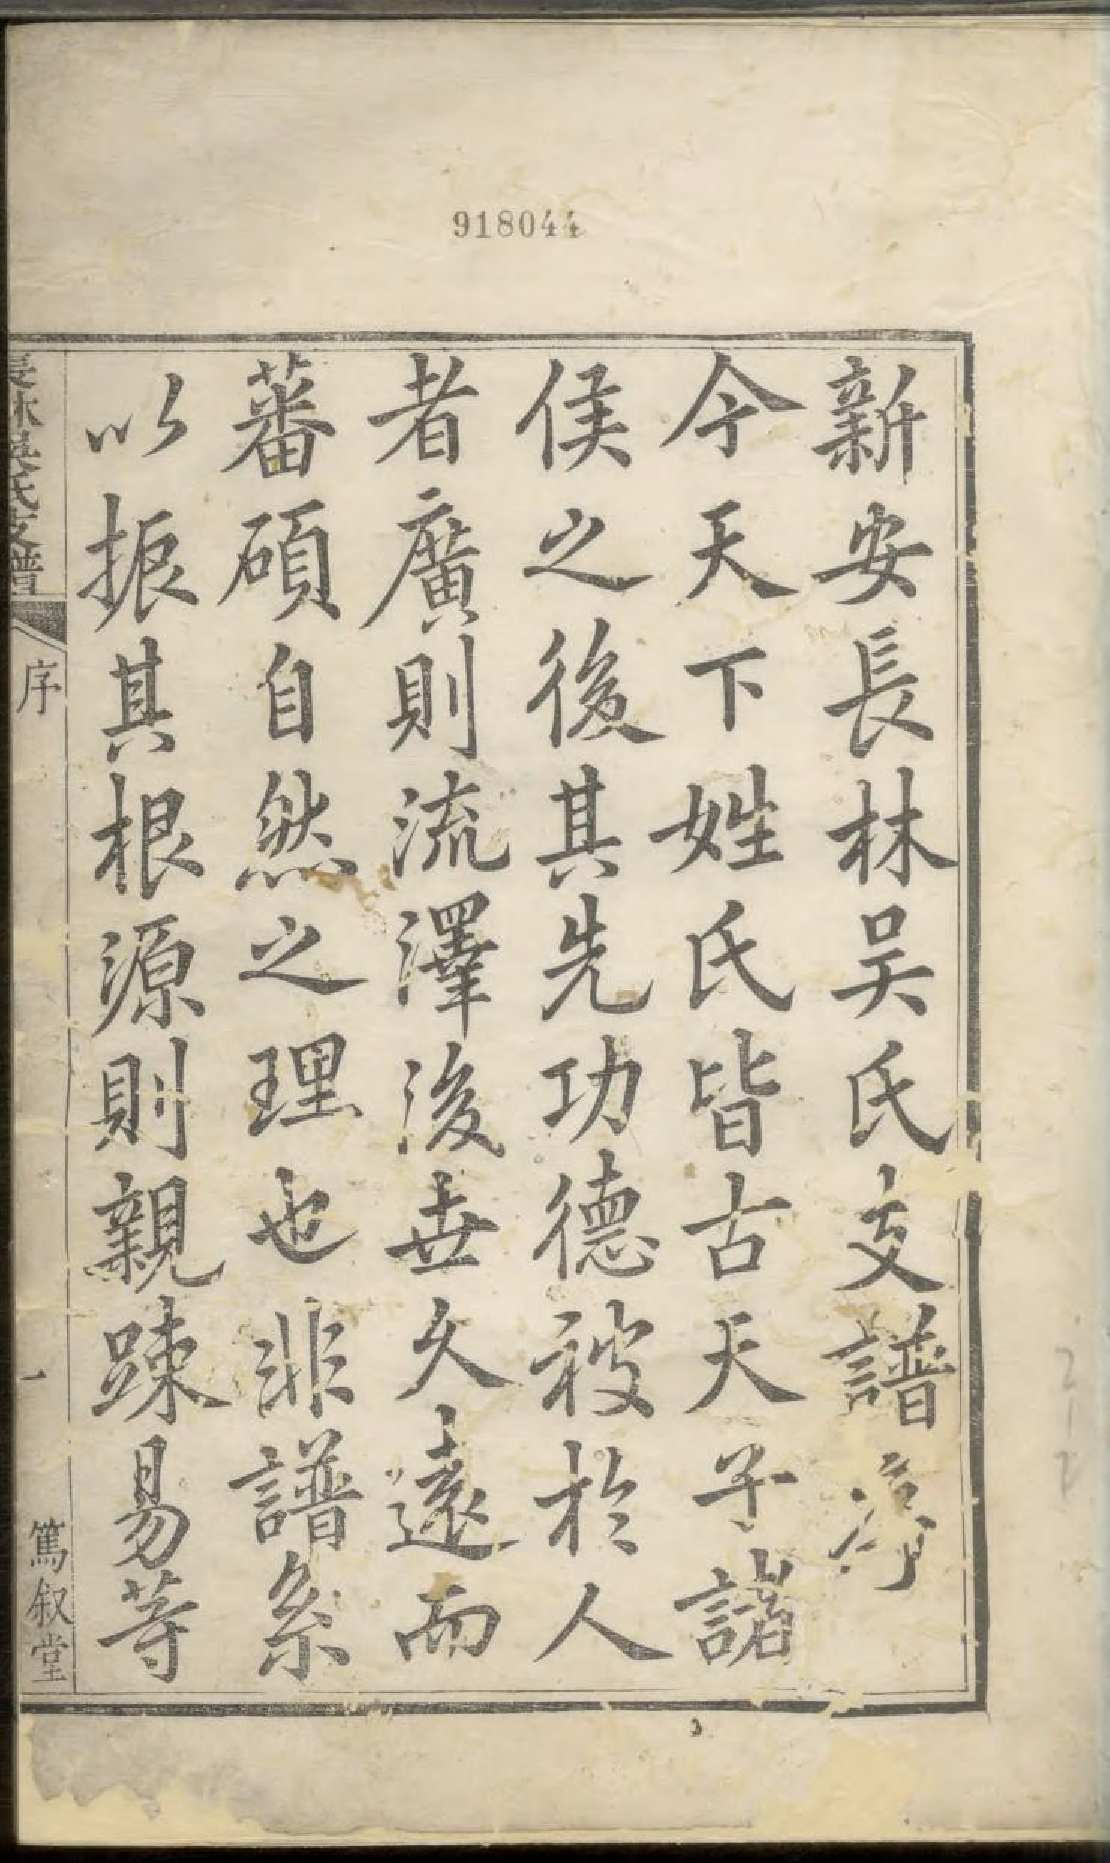 918044
新安長林吴氏支譜序
今天下姓氏皆古天子諸
侯之後其先功德被於人
者廣則流澤後世久遠而
蕃碩自然之理也非譜系
以振其根源則親踈易等
長林吳氏支譜
序
一
篤叙堂